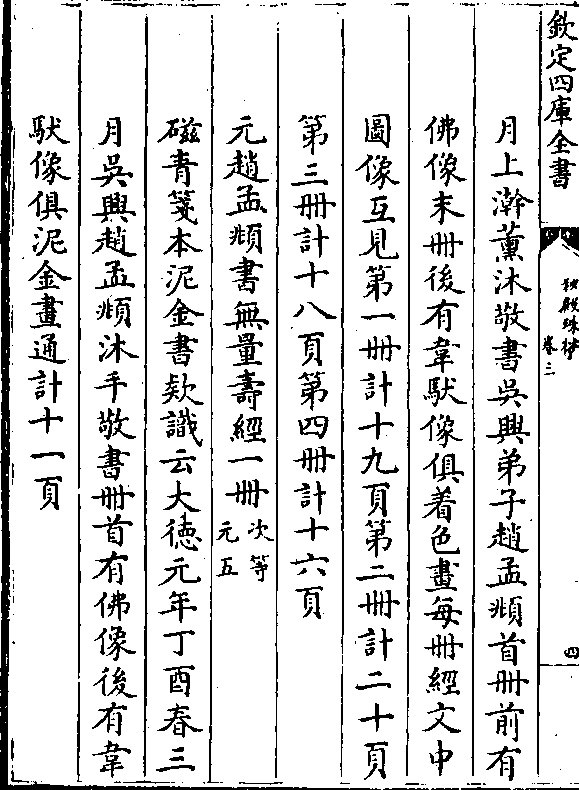 欽定四庫全書
秘殿珠林
卷三
四
月上澣薰沐敬書吳興弟子趙孟頫首冊前有
佛像末冊後有韋馱像俱着色畫每冊經文中
圖像互見第一冊計十九頁第二冊計二十頁
第三冊計十八頁第四冊計十六頁
元趙孟頫書無量壽經一冊次等元五
磁青箋本泥金書欵識云大德元年丁酉春三
月吳興趙孟頫沐手敬書冊首有佛像後有韋
馱像俱泥金畫通計十一頁